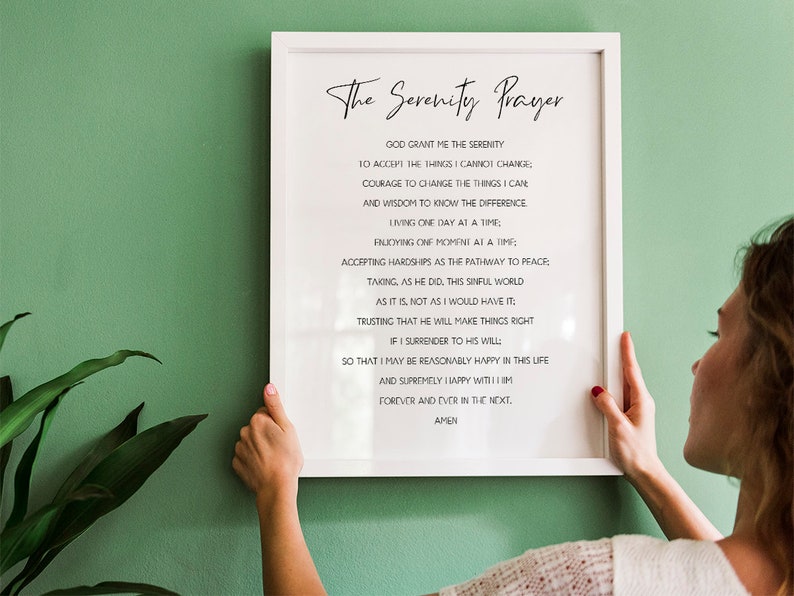 The Serenity Prayer
GOD GRANT ME THE SERENITY
TO ACCEPT THE THINGS I CANNOT CHANGE;
COURAGE TO CHANGE THE THINGS I CAN;
AND WISDOM TO KNOW THE DIFFERENCE.
LIVING ONE DAY AT A TIME;
ENJOYING ONE MOMENT AT A TIME;
ACCEPTING HARDSHIPS AS THE PATHWAY TO PEACE;
TAKING, AS HE DID, THIS SINFUL WORLD
AS IT IS, NOT AS I WOULD HAVE IT;
TRUSTING THAT HE WILL MAKE THINGS RIGHT
IF I SURRENDER TO HIS WILL;
SO THAT I MAY BE REASONABLY HAPPY IN THIS LIFE
AND SUPREMELY HAPPY WITH HIM
FOREVER AND EVER IN THE NEXT.
AMEN